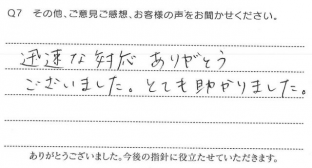 Q7 その他、ご意見ご感想、お客様の声をお聞かせください。
迅速な対応 ありがとう
ございました。とても助かりました。
ありがとうございました。今後の指針に役立たせていただきます。